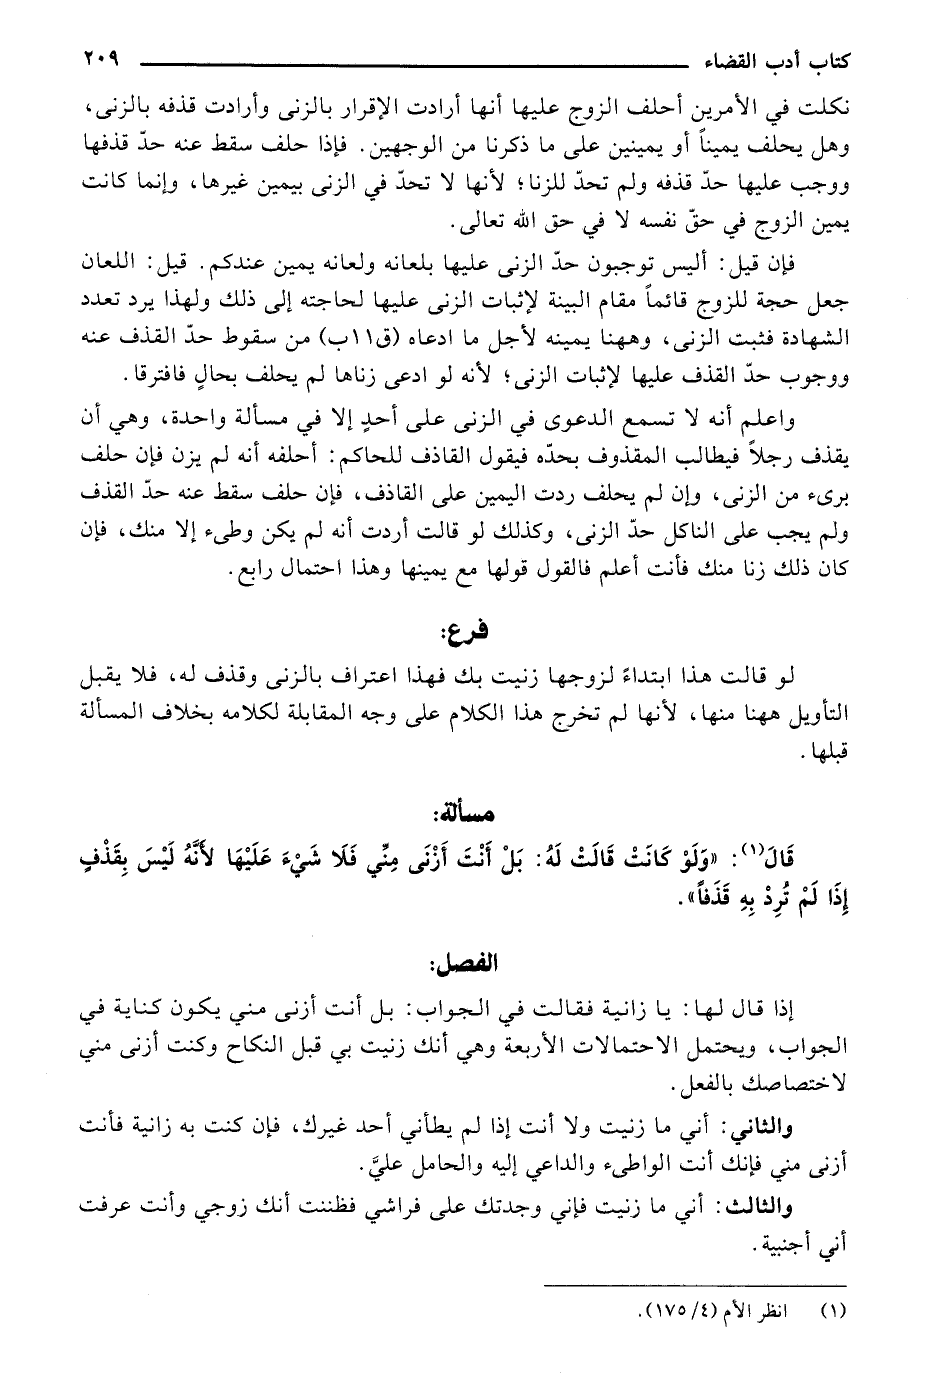 كتاب أدب القضاء ٢٠٩
نكلت في الأمرين أحلف الزوج عليها أنها أرادت الإقرار بالزنى وأرادت قذفه بالزنى،
وهل يحلف يميناً أو يمينين على ما ذكرنا من الوجهين. فإذا حلف سقط عنه حدّ قذفها
ووجب عليها حدّ قذفه ولم تحدّ للزنا؛ لأنها لا تحدّ في الزنى بيمين غيرها، وإنما كانت
يمين الزوج في حقّ نفسه لا في حق الله تعالى.
فإن قيل: أليس توجبون حدّ الزنى عليها بلعانه ولعانه يمين عندكم. قيل: اللعان
جعل حجة للزوج قائماً مقام البينة لإثبات الزنى عليها لحاجته إلى ذلك ولهذا يرد تعدد
الشهادة فثبت الزنى، وههنا يمينه لأجل ما ادعاه (ق١١ب) من سقوط حدّ القذف عنه
ووجوب حدّ القذف عليها لإثبات الزنى؛ لأنه لو ادعى زناها لم يحلف بحالٍ فافترقا.
واعلم أنه لا تسمع الدعوى في الزنى على أحدٍ إلا في مسألة واحدة، وهي أن
يقذف رجلاً فيطالب المقذوف بحدّه فيقول القاذف للحاكم: أحلفه أنه لم يزن فإن حلف
برىء من الزنى، وإن لم يحلف ردت اليمين على القاذف، فإن حلف سقط عنه حدّ القذف
ولم يجب على الناكل حدّ الزنى، وكذلك لو قالت أردت أنه لم يكن وطىء إلا منك، فإن
كان ذلك زنا منك فأنت أعلم فالقول قولها مع يمينها وهذا احتمال رابع.
فرع:
لو قالت هذا ابتداءً لزوجها زنيت بك فهذا اعتراف بالزنى وقذف له، فلا يقبل
التأويل ههنا منها، لأنها لم تخرج هذا الكلام على وجه المقابلة لكلامه بخلاف المسألة
قبلها.
مسألة:
قَالَ(١): «وَلَوْ كَانَتْ قَالَتْ لَهُ: بَلْ أَنْتَ أَزْنَى مِنِّي فَلَا شَيْءَ عَلَيْهَا لأَنَّهُ لَيْسَ بِقَذْفٍ
إِذَا لَمْ تُرِدْ بِهِ قَذَفاً».
الفصل:
إذا قال لها: يا زانية فقالت في الجواب: بل أنت أزنى مني يكون كناية في
الجواب، ويحتمل الاحتمالات الأربعة وهي أنك زنيت بي قبل النكاح وكنت أزنى مني
لاختصاصك بالفعل.
والثاني: أني ما زنيت ولا أنت إذا لم يطأني أحد غيرك، فإن كنت به زانية فأنت
أزنى مني فإنك أنت الواطىء والداعي إليه والحامل عليَّ.
والثالث: أني ما زنيت فإني وجدتك على فراشي فظننت أنك زوجي وأنت عرفت
أني أجنبية.
(١) انظر الأم (٤/ ١٧٥).